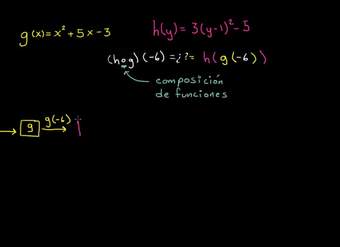 g(x)=x²+5x-3
h(y)=3(y-1)²-5
(hog)(-6)=¿?=h(g(-6))
composición
de funciones
g
g(-6)